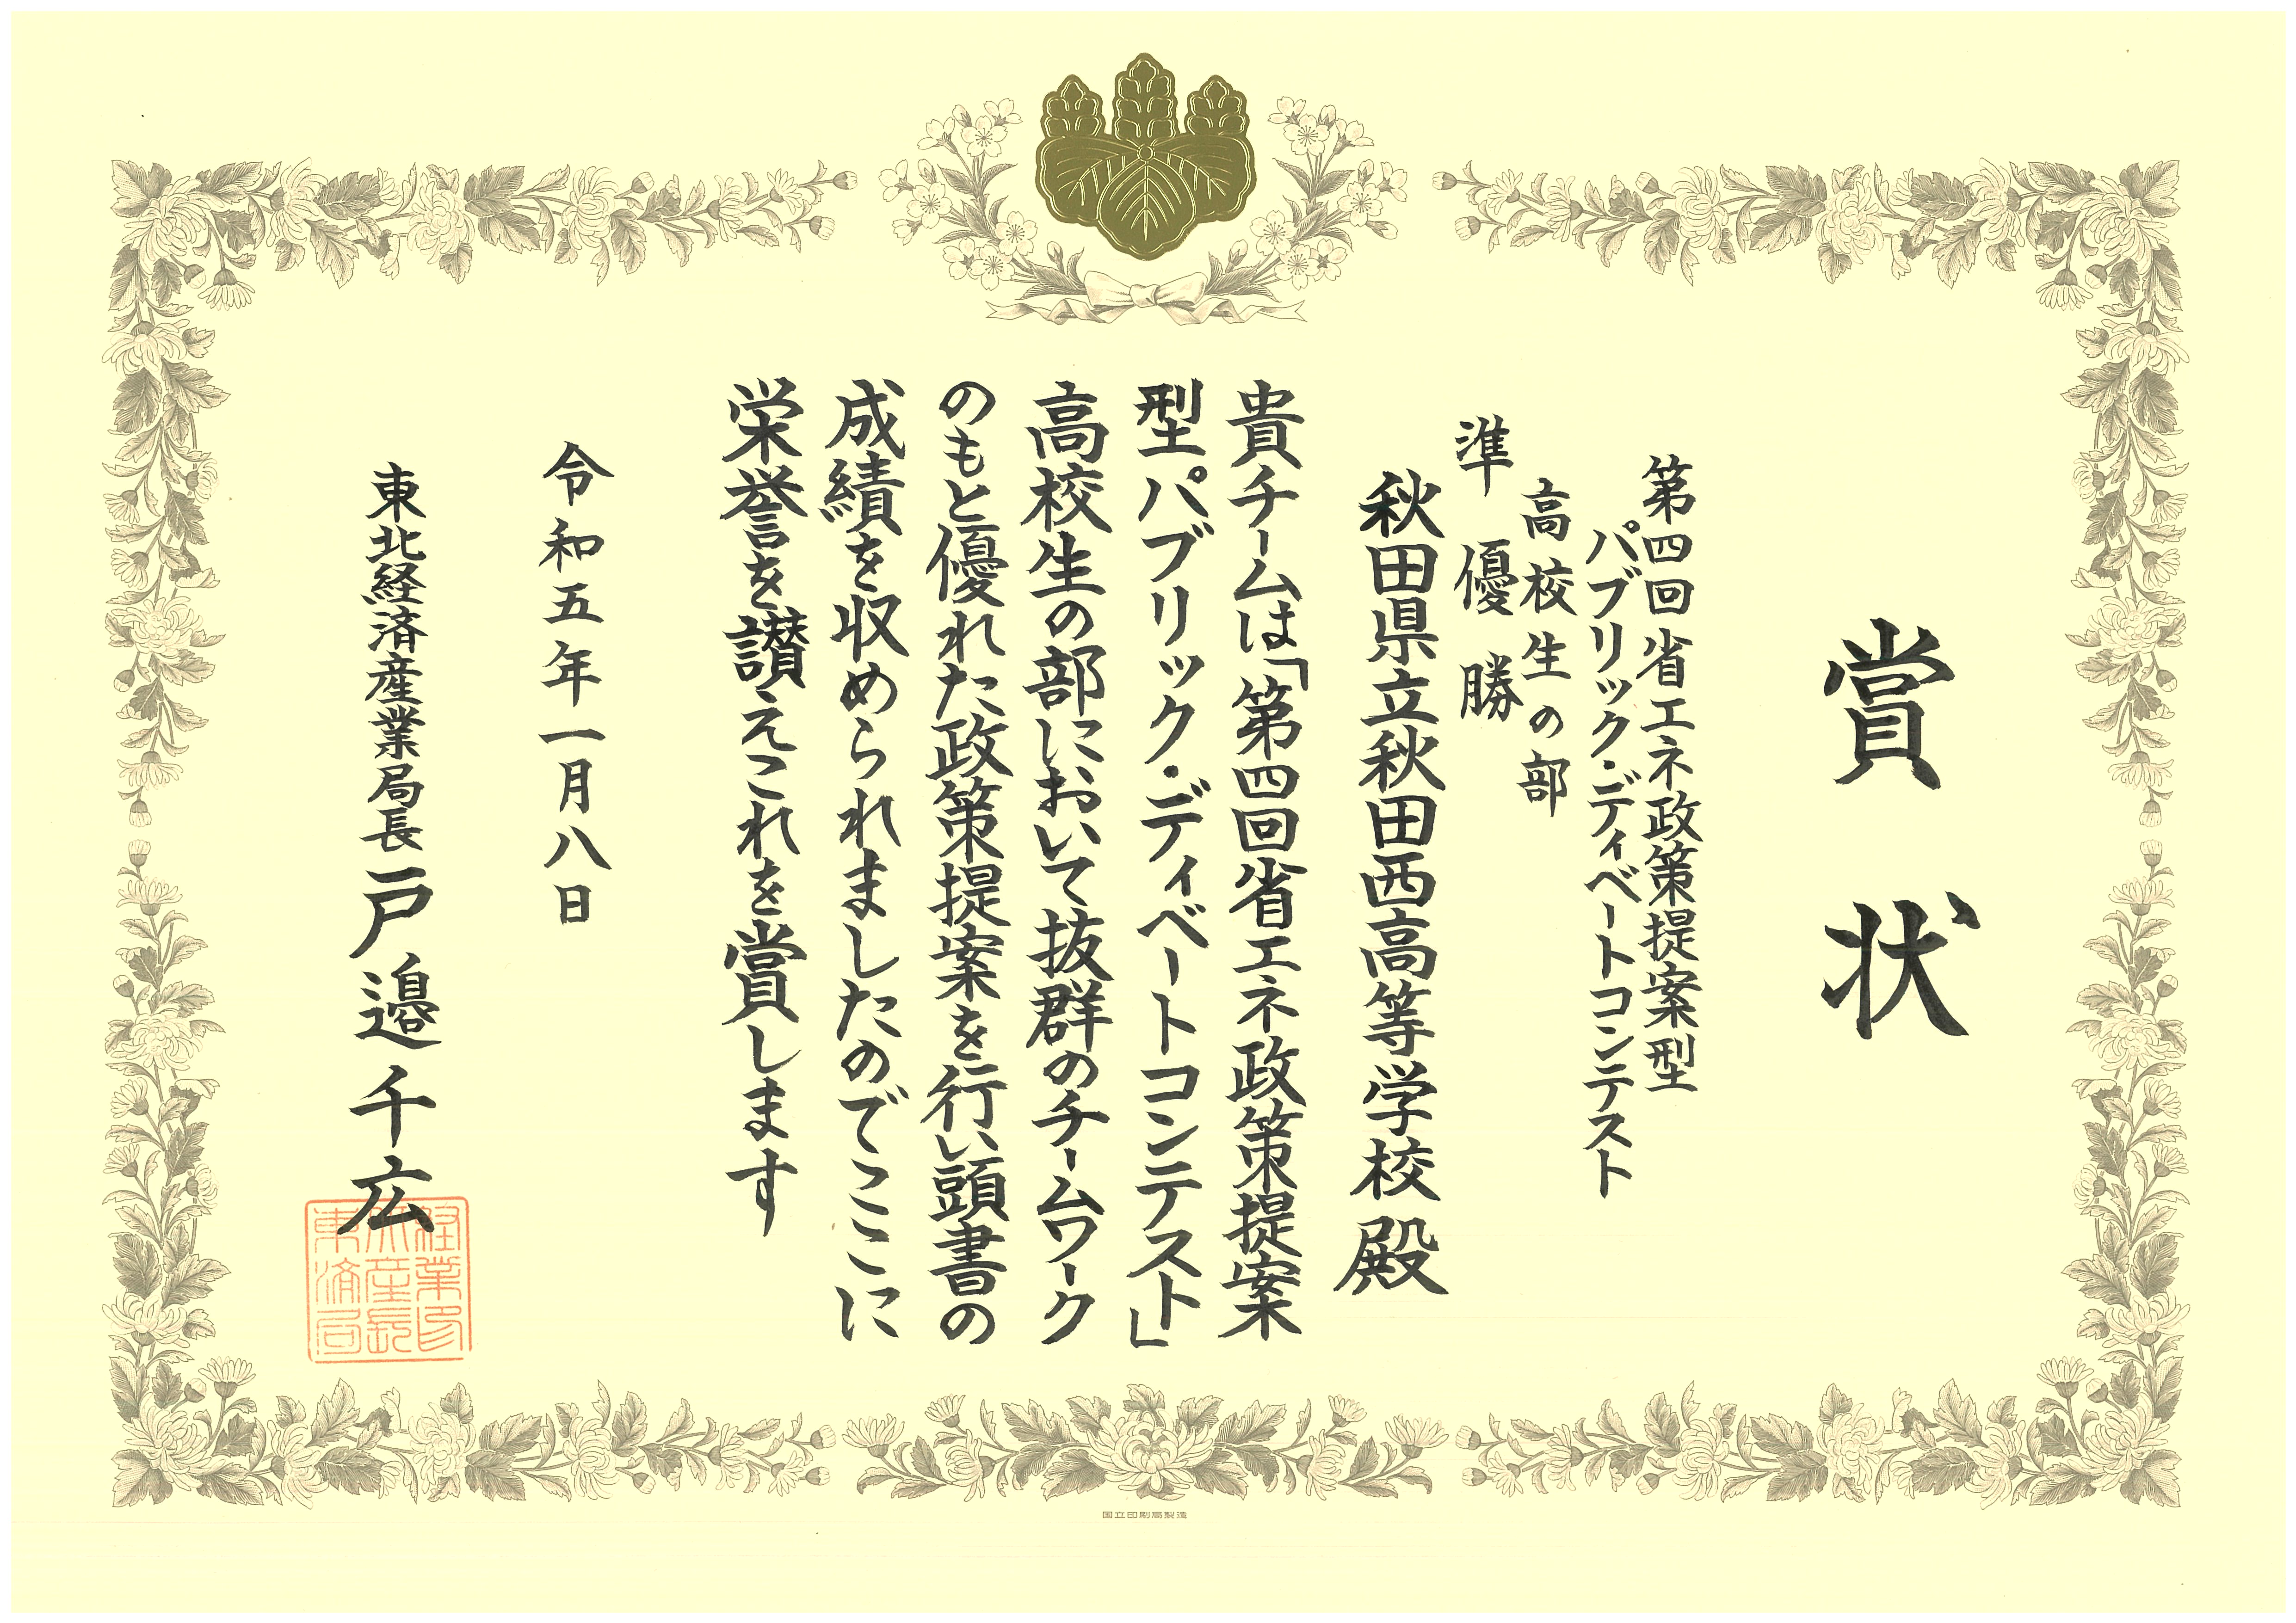 賞状
第四回省エネ政策提案型
パブリック・ディベートコンテスト
高校生の部
準優勝
秋田県立秋田西高等学校殿
貴チームは「第四回省エネ政策提案
型パブリック・ディベートコンテスト」
高校生の部において抜群のチームワーク
のもと優れた政策提案を行い頭書の
成績を収められましたのでここに
栄誉を讃えこれを賞します
令和五年一月八日
東北経済産業局長 戸邉千広
国立印刷局製造